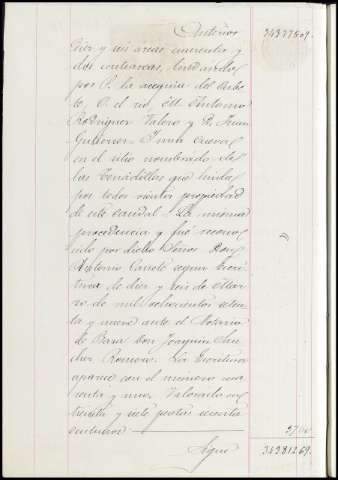 Anterior 34377509.
Diez y seis areas cuarenta y
dos centiareas, lindando
por S. la acequia del
O. el rio, M. Antonio
Rodriguez Valero y P. Juan
Gutierrez. Y una cueva
en el sitio nombrado de
las que linda
por todos vientos propiedad
de este caudal. La misma
procedencia y fué recono-
cido por dicho Señor Don
Antonio segun Escri-
tura de diez y seis de Mar-
zo de mil ochocientos ochen-
ta y nueve ante el Notario
de Baza Don Joaquin San-
chez Romero. La Escritura
aparece con el número cua-
renta y uno. Valorado en
treinta y siete pesetas sesenta
centimos 3760
Sigue 34381269.